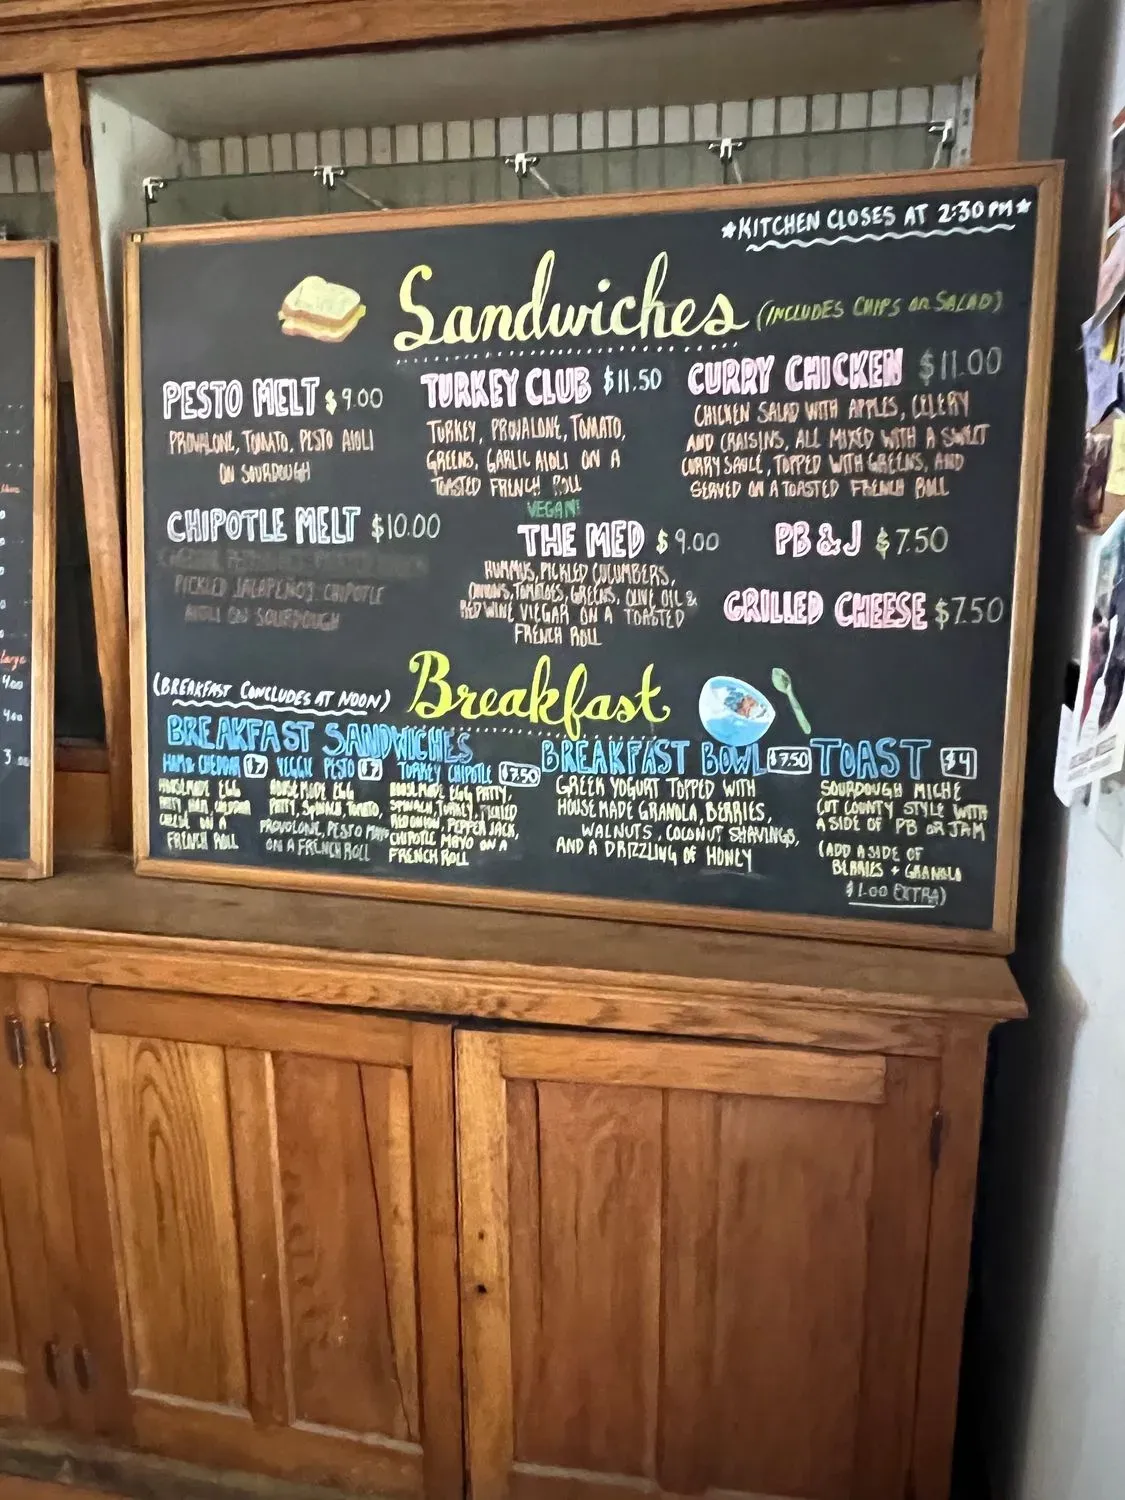 ★KITCHEN CLOSES AT 2:30 PM★
Sandwiches (INCLUDES CHIPS OR SALAD)
PESTO MELT $9.00
PROVALONE, TOMATO, PESTO AIOLI
ON SOURDOUGH
TURKEY CLUB $11.50
TURKEY, PROVALONE, TOMATO,
GREENS, GARLIC AIOLI ON A
TOASTED FRENCH ROLL
CURRY CHICKEN $11.00
CHICKEN SALAD WITH APPLES, CELERY
AND CRAISINS, ALL MIXED WITH A SWEET
CURRY SAUCE, TOPPED WITH GREENS, AND
SERVED ON A TOASTED FRENCH ROLL
CHIPOTLE MELT $10.00
PICKLED JALAPEÑOS, CHIPOTLE
AIOLI ON SOURDOUGH
VEGAN!
THE MED $9.00
HUMMUS, PICKLED CUCUMBERS,
ONIONS, TOMATOES, GREENS, OLIVE OIL &
RED WINE VIEGAR ON A TOASTED
FRENCH ROLL
PB & J $7.50
GRILLED CHEESE $7.50
Breakfast
(BREAKFAST CONCLUDES AT NOON)
BREAKFAST SANDWICHES
HAM & CHEDDAR $7
HOUSEMADE EGG
PATTY, HAM, CHEDDAR
CHEESE ON A
FRENCH ROLL
VEGGIE PESTO $7
HOUSEMADE EGG
PATTY, SPINACH, TOMATO,
PROVOLONE, PESTO MAYO
ON A FRENCH ROLL
TURKEY CHIPOTLE $7.50
HOUSEMADE EGG PATTY,
SPINACH, TURKEY, PICKLED
RED ONION, PEPPER JACK,
CHIPOTLE MAYO ON A
FRENCH ROLL
BREAKFAST BOWL $7.50
GREEK YOGURT TOPPED WITH
HOUSEMADE GRANOLA, BERRIES,
WALNUTS, COCONUT SHAVINGS,
AND A DRIZZLING OF HONEY
TOAST $4
SOURDOUGH MICHE
CUT COUNTY STYLE WITH
A SIDE OF PB OR JAM
(ADD A SIDE OF
BERRIES + GRANOLA
$1.00 EXTRA)
Large
4.00
4.00